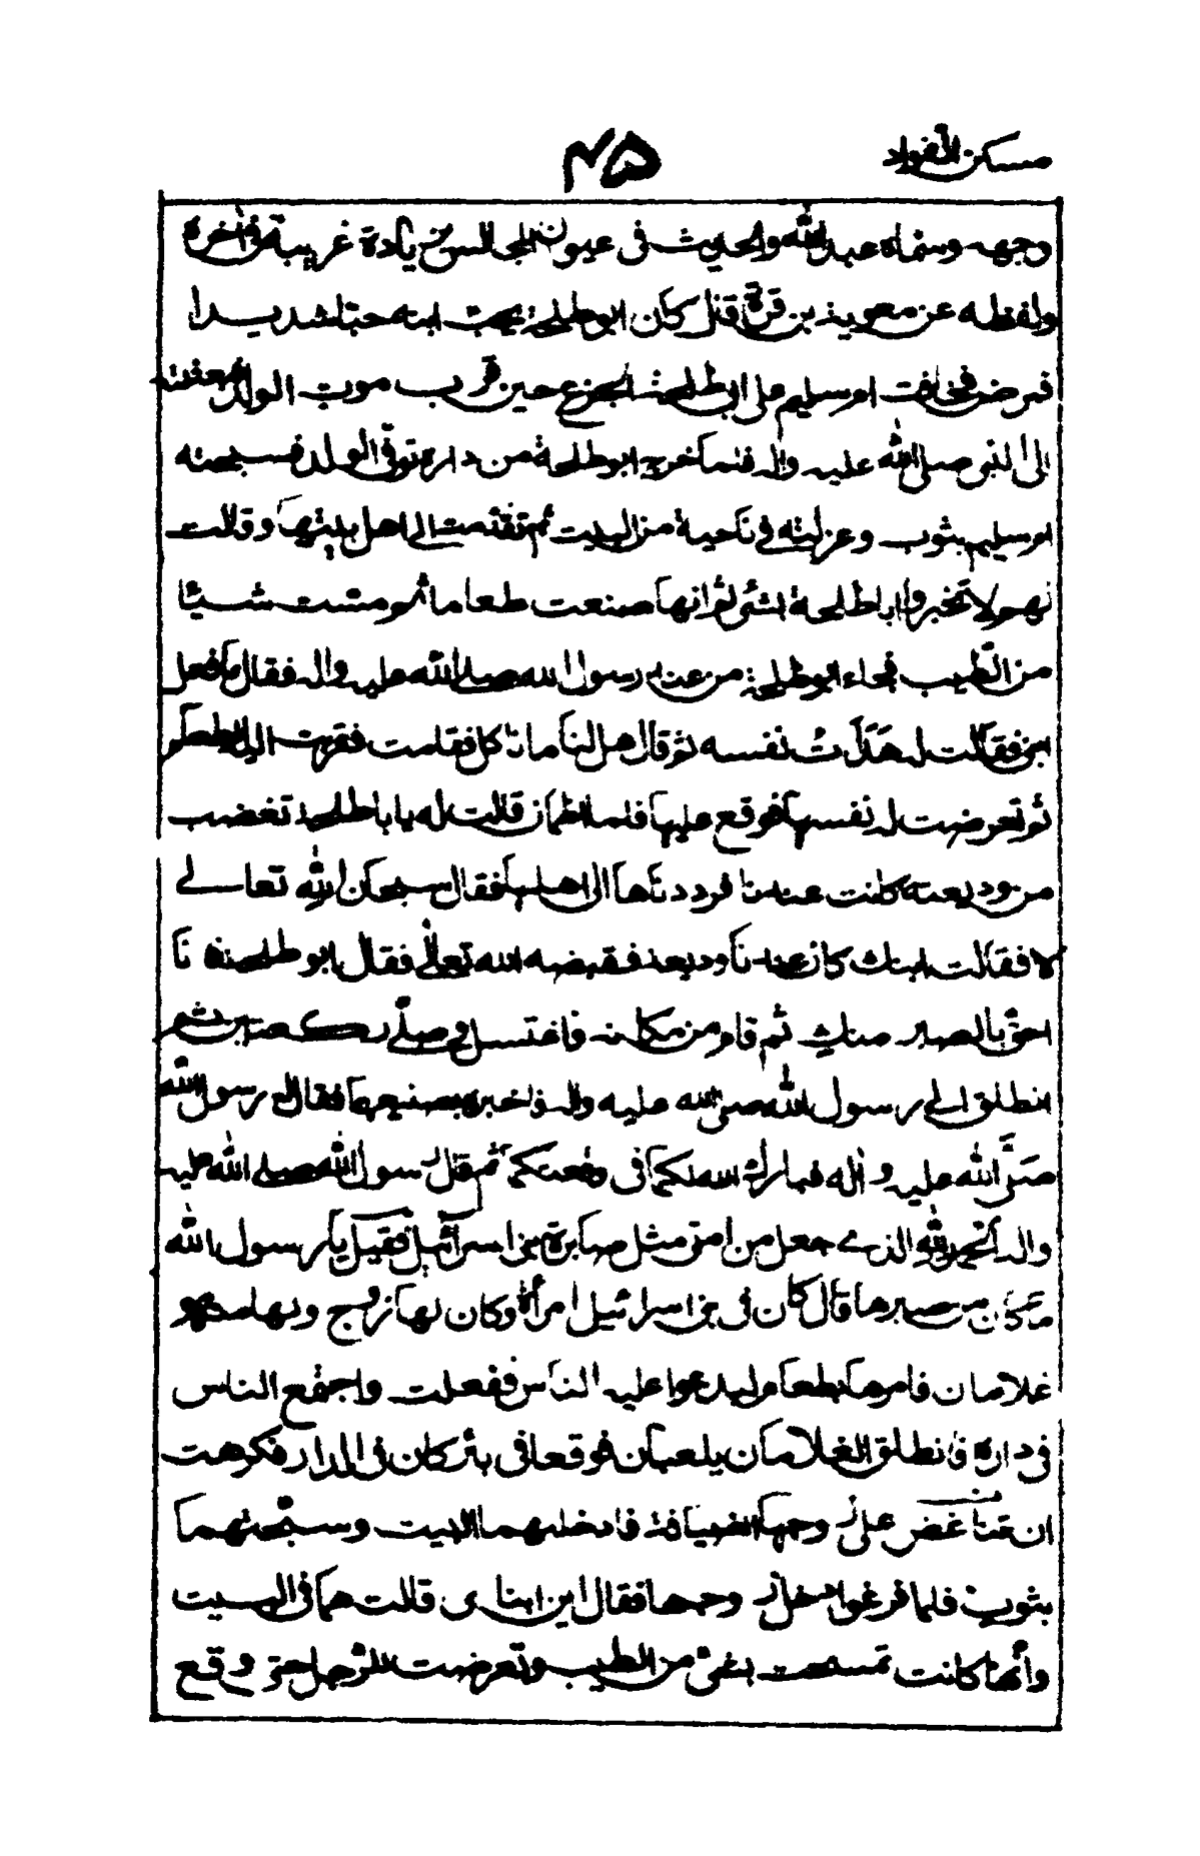 مسكن الفواد
۴۵
وجهه وسماه عبد الله والحديث فى عيون المجالس زيادة غريبة فى اخره
ولفظه عن معوية بن قرة قال كان ابو طلحة يحب ابنه حبا شديدا
فمرض فخافت ام سليم على ابى طلحة الجزع حين قرب موت الولد فبعثته
الى النبى صلى الله عليه واله فلما خرج ابو طلحة من داره توفى الولد فسجته
ام سليم بثوب وعزلته فى ناحية من البيت ثم تقدمت الى اهل بيتها وقالت
لهم لا تخبروا ابا طلحة بشئ ثم انها صنعت طعاما ثم مست شيئا
من الطيب فجاء ابو طلحة من عند رسول الله صلى الله عليه واله فقال ما فعل
ابنى فقالت له هدأت نفسه ثم قال هل لنا ما ناكل فقامت فقربت اليه الطعام
ثم تعرضت له نفسها فوقع عليها فلما اطمان قالت له يا ابا طلحة تغضب
من وديعة كانت عندنا فرددناها الى اهلها فقال سبحان الله تعالى
لا فقالت ابنك كان عندنا وديعة فقبضه الله تعالى فقال ابو طلحة فانا
احق بالصبر منك ثم قام من مكانه فاغتسل وصلى ركعتين ثم
انطلق الى رسول الله صلى الله عليه واله فاخبره بصنيعها فقال له رسول الله
صلى الله عليه واله فبارك الله لكما فى وقعتكما ثم قال رسول الله صلى الله عليه
واله الحمد لله الذى جعل من امتى مثل صابرة بنى اسرائيل فقيل يا رسول الله
ما كان من صبرها قال كان فى بنى اسرائيل امرأة وكان لها زوج ولها منه
غلامان فامرها بطعام ليدعوا عليه الناس ففعلت واجتمع الناس
فى داره فانطلق الغلامان يلعبان فوقعا فى بئر كان فى الدار فكرهت
ان تنغض على زوجها الضيافة فادخلتهما البيت وسجتهما
بثوب فلما فرغوا دخل زوجها فقال اين ابناى قالت هما فى البيت
وانها كانت تمسحت بشئ من الطيب وتعرضت للرجل حتى وقع